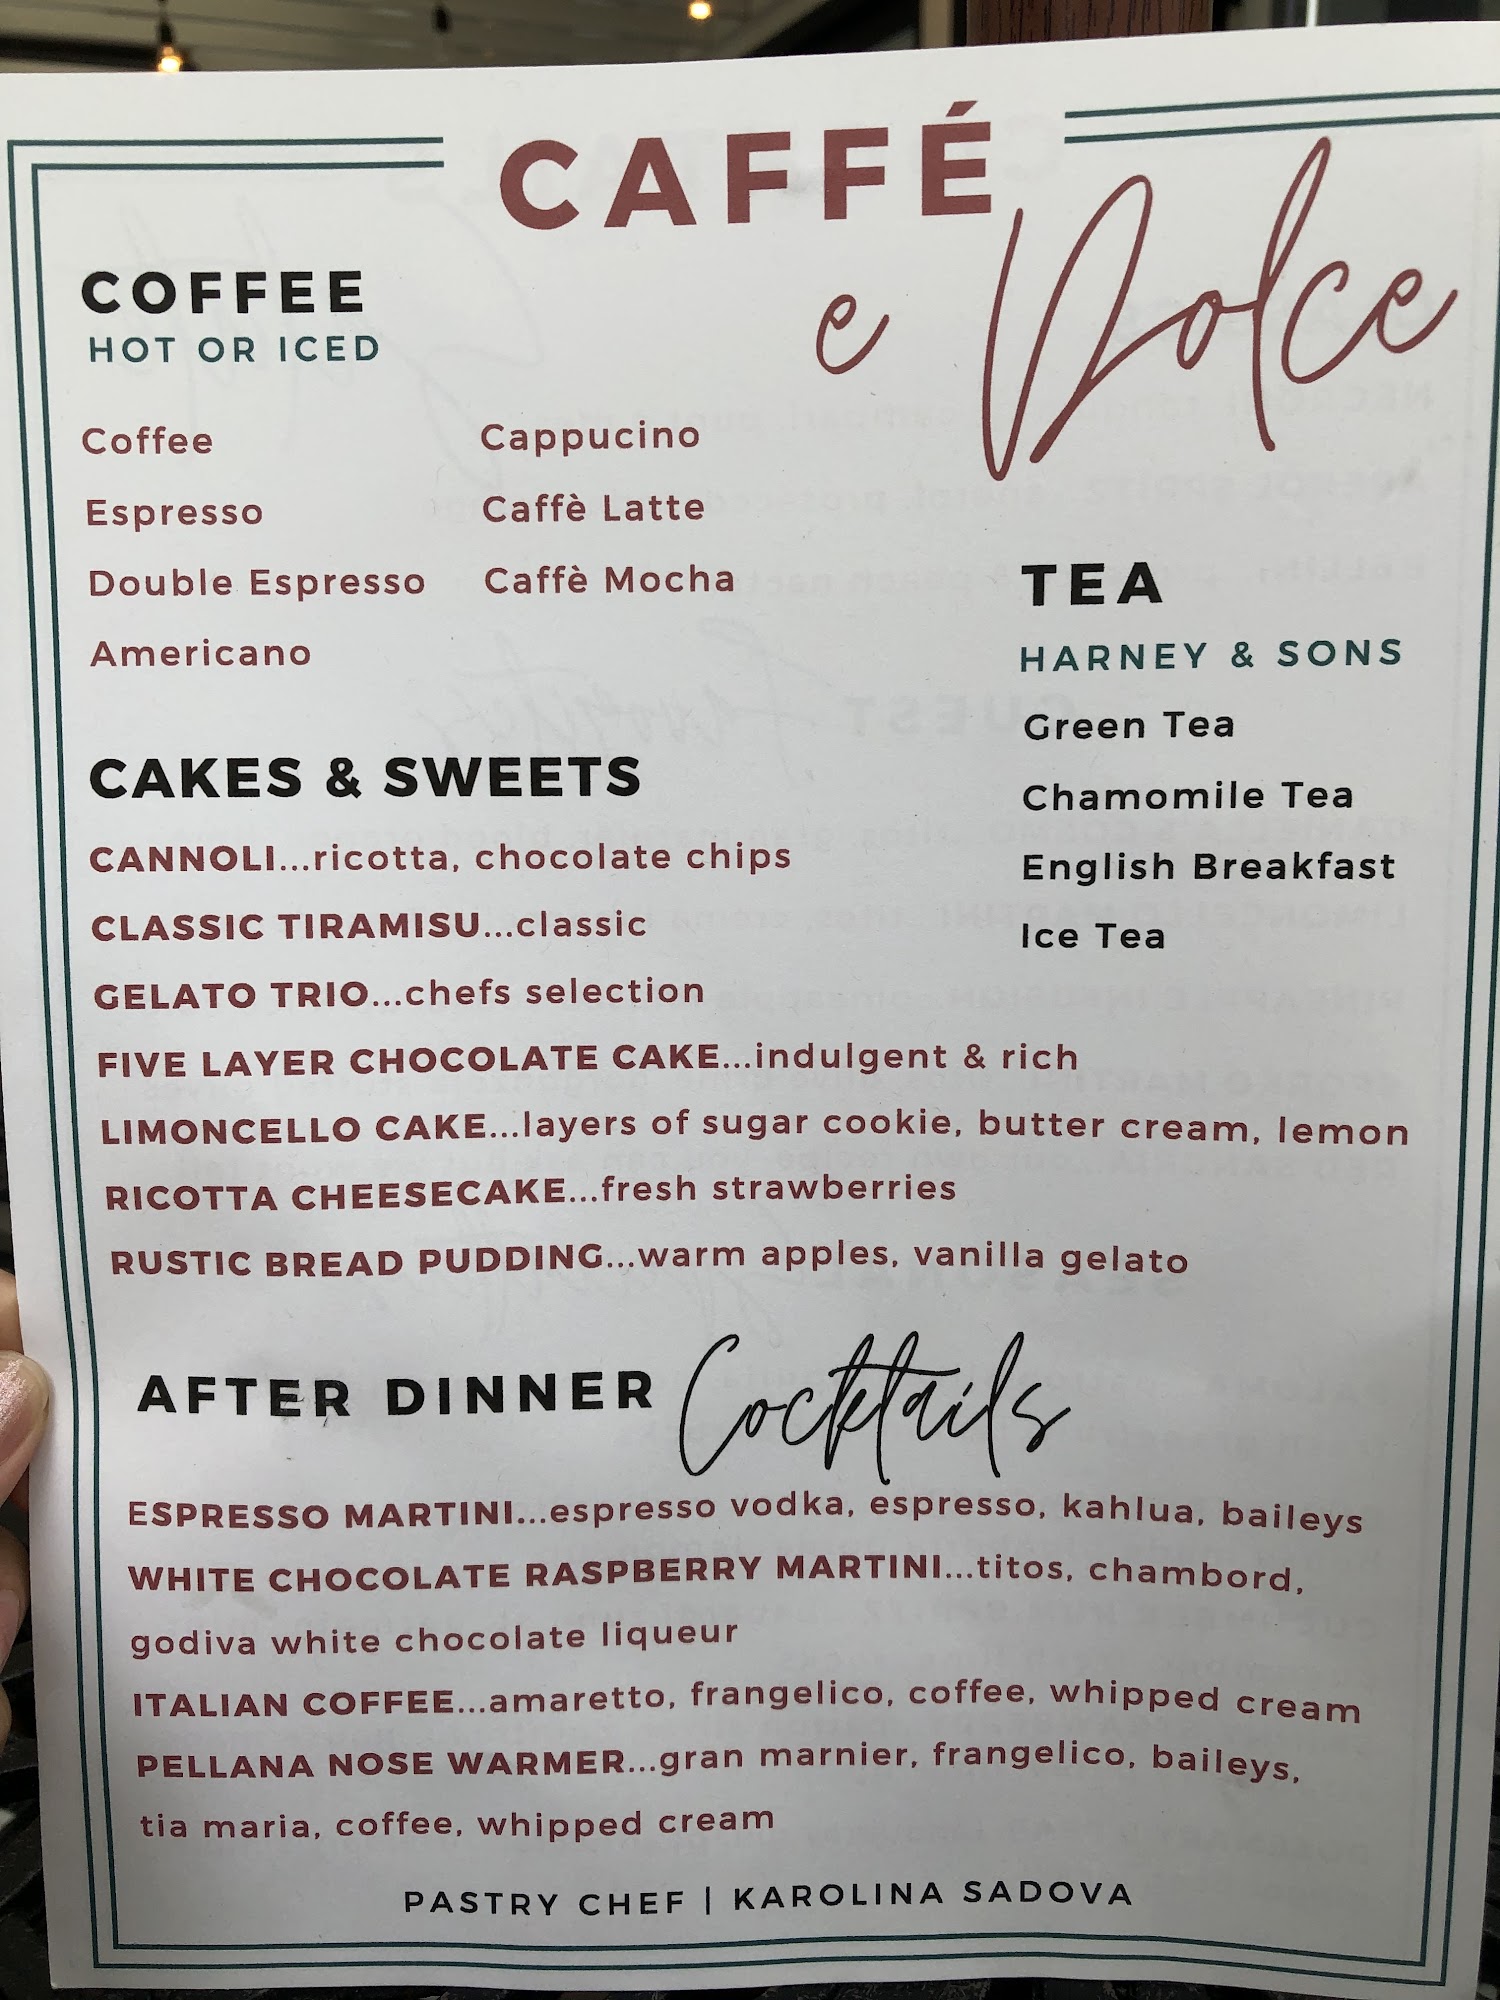 CAFFÉ
e Dolce
COFFEE
HOT OR ICED
Coffee
Espresso
Double Espresso
Americano
Cappucino
Caffè Latte
Caffè Mocha
TEA
HARNEY & SONS
Green Tea
Chamomile Tea
English Breakfast
Ice Tea
CAKES & SWEETS
CANNOLI...ricotta, chocolate chips
CLASSIC TIRAMISU...classic
GELATO TRIO...chefs selection
FIVE LAYER CHOCOLATE CAKE...indulgent & rich
LIMONCELLO CAKE...layers of sugar cookie, butter cream, lemon
RICOTTA CHEESECAKE...fresh strawberries
RUSTIC BREAD PUDDING...warm apples, vanilla gelato
AFTER DINNER Cocktails
ESPRESSO MARTINI...espresso vodka, espresso, kahlua, baileys
WHITE CHOCOLATE RASPBERRY MARTINI...titos, chambord,
godiva white chocolate liqueur
ITALIAN COFFEE...amaretto, frangelico, coffee, whipped cream
PELLANA NOSE WARMER...gran marnier, frangelico, baileys,
tia maria, coffee, whipped cream
PASTRY CHEF | KAROLINA SADOVA